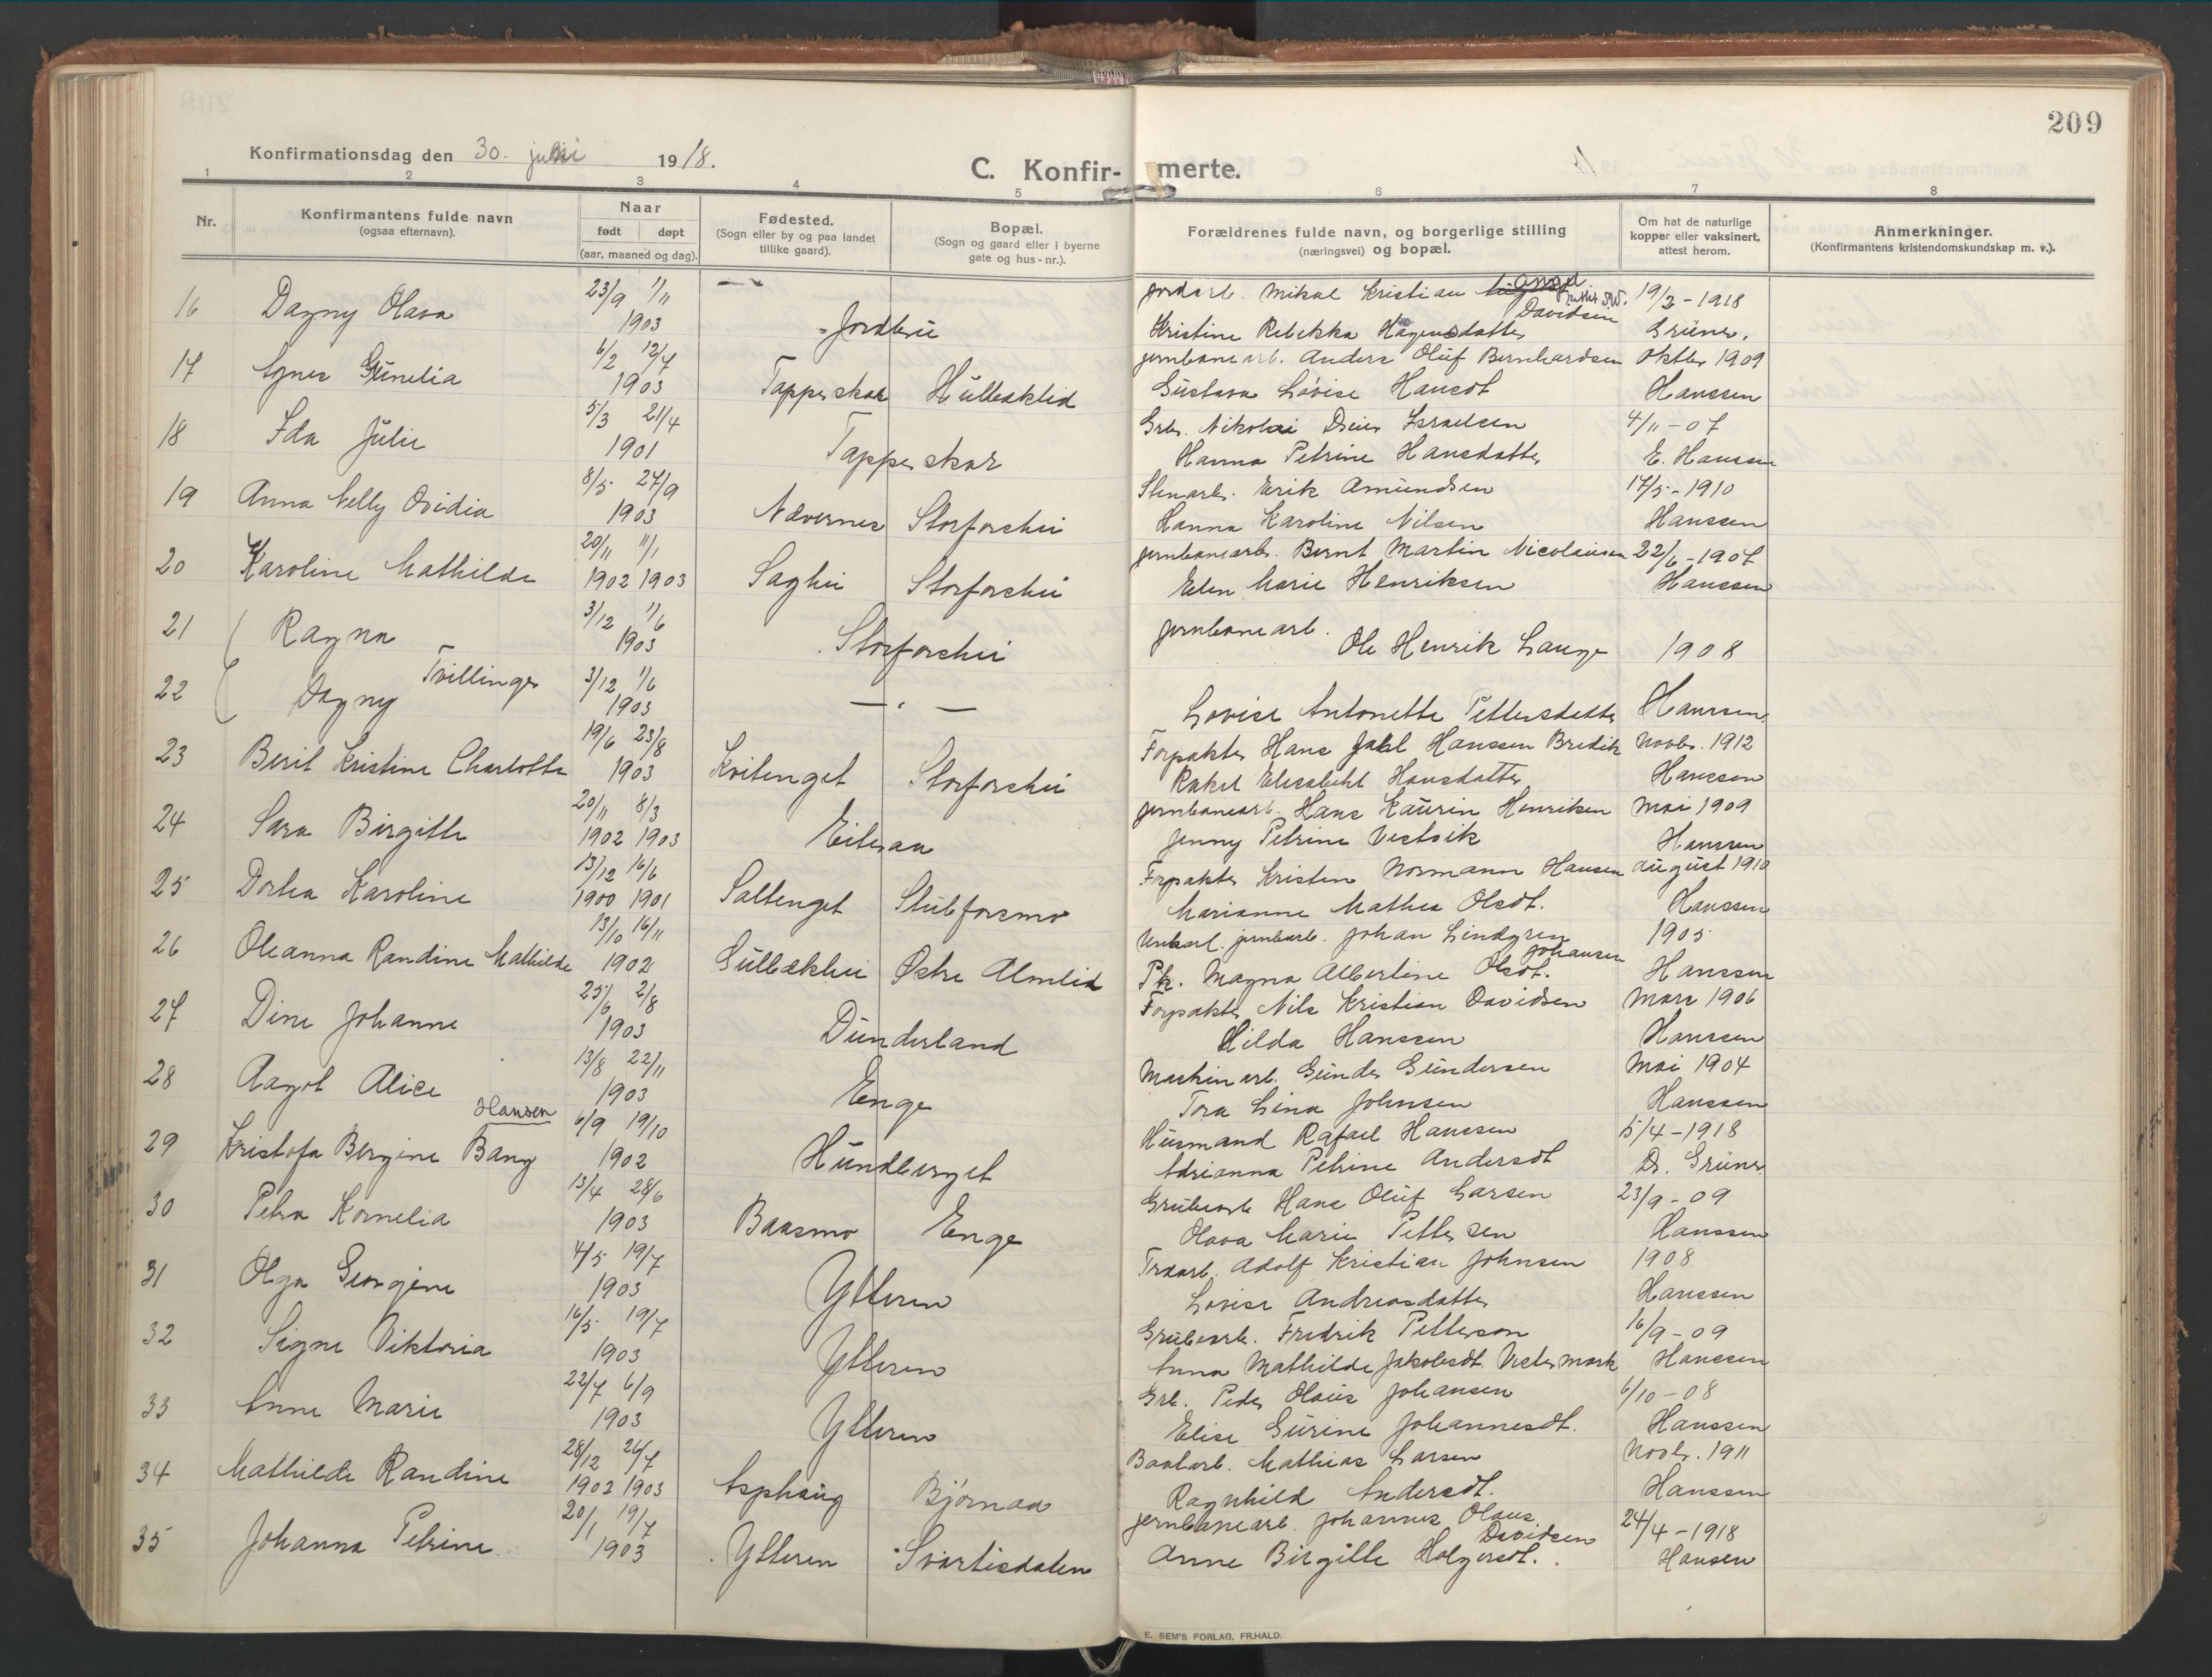 209
Konfirmationsdag den 30. juni 1918.
C. Konfir- merte.
1 2 3 4 5 6 7 8
Nr.
Konfirmantens fulde navn
(ogsaa efternavn).
Naar
født døpt
(aar, maaned og dag).
Fødested.
(Sogn eller by og paa landet
tillike gaard).
Bopæl.
(Sogn og gaard eller i byerne
gate og hus-nr.).
Forældrenes fulde navn, og borgerlige stilling
(næringsvei) og bopæl.
Om hat de naturlige
kopper eller vaksinert,
attest herom.
Anmerkninger.
(Konfirmantens kristendomskundskap m. v.).
16 Dagny Olava 23/9 1/11 1903 Jordbru
Jordarb. Mikal Kristian Davidsen 19/2 - 1918
Kristine Rebekka Hagensdatter Grüner.
17 Agnes Gunelia 6/2 12/7 1903 Tappeskar Hullbæklid
jernbanearb. Anders Oluf Bernhardsen oktbr 1909
Gustava Lovise Hansdt Hanssen
18 Ida Julie 5/3 21/4 1901 Tappeskar
Grbr. Nikolai Dreier Israelsen 4/11 - 07
Hanna Petrine Hansdatter E. Hanssen
19 Anna Nelly Ovidia 8/5 27/9 1903 Nævernes Storforshei
Stenarb. Erik Amundsen 17/5 - 1910
Hanna Karoline Nilsen Hanssen
20 Karoline Mathilde 20/11 11/1 1902 1903 Saghei Storforshei
jernbanearb. Bernt Martin Nicolaisen 22/6 - 1907
Elen Marie Henriksen Hanssen
21 Ragna 3/12 1/6 1903 Storforshei
jernbanearb. Ole Henrik Lange 1908
Tvillinger
22 Dagny 3/12 1/6 1903 — " —
Lovise Antonette Pettersdatter Hanssen
23 Berit Kristine Charlotte 19/6 23/8 1903 Kvitenget Storforshei
Forpakter Hans Jakl Hanssen Bredik Novbr. 1912
Rakel Elisabeht Hansdatter Hanssen
24 Sara Birgitte 20/11 8/3 1902 1903 Eiteraa
jernbanearb. Hans Kaurin Henriksen Mai 1909
Jenny Petrine Vestvik Hanssen
25 Dorthea Karoline 13/12 16/6 1900 1901 Saltenget Stubforsmo
Forpakter Kristen Normann Hansen august 1910
Marianne Mathea Olsdt. Hanssen
26 Oleanna Randine Mathilde 13/10 16/11 1902 Gullbækhei Østre Almlid
Unkarl. jernbarb. Johan Lindgren Johansen 1905
Pk. Magna Albertine Olsdt. Hanssen
27 Dina Johanne 25/6 2/8 1903 Dunderland
Forpakter Nils Kristian Davidsen Mars 1906
Hilda Hanssen Hanssen
28 Aagot Alice 13/8 22/11 1903 Enge
Maskinarb. Gunder Gundersen Mai 1904
Tora Lina Johnsen Hanssen
29 Kristofa Bergine Bang Hansen 6/9 19/10 1902 Hundberget
Husmand Rafael Hanssen 15/4 - 1918
Adrianna Petrine Andersdt Dr. Grüner
30 Petra Kornelia 13/4 28/6 1903 Baasmo Enge
Grubearb Hans Oluf Larsen 23/9 - 09
Olava Marie Pettersen Hanssen
31 Olga Georgine 4/5 19/7 1903 Ytteren
Træarb. Adolf Kristian Johnsen 1908
Lovise Andreasdatter Hanssen
32 Signe Viktoria 16/5 19/7 1903 Ytteren
Grubearb. Fredrik Petterson 16/9 - 09
Anna Mathilde Jakobsdt. Vestermark Hanssen
33 Anne Marie 22/7 6/9 1903 Ytteren
Grb. Peder Olaus Johansen 6/10 - 08
Elise Gurine Johannesdt. Hanssen
34 Mathilde Randine 28/12 26/7 1902 1903 Asphaug Bjørnaa
Baatarb. Mathias Larsen Novbr. 1911
Ragnhild Andersdt. Hanssen
35 Johanna Petrine. 20/1 19/7 1903 Ytteren Svartisdalen
jernbanearb. Johannes Olaus Davidsen 24/4 - 1918
Anne Birgitte Holgersdt. Hansen
E. SEM'S FORLAG, FR.HALD.